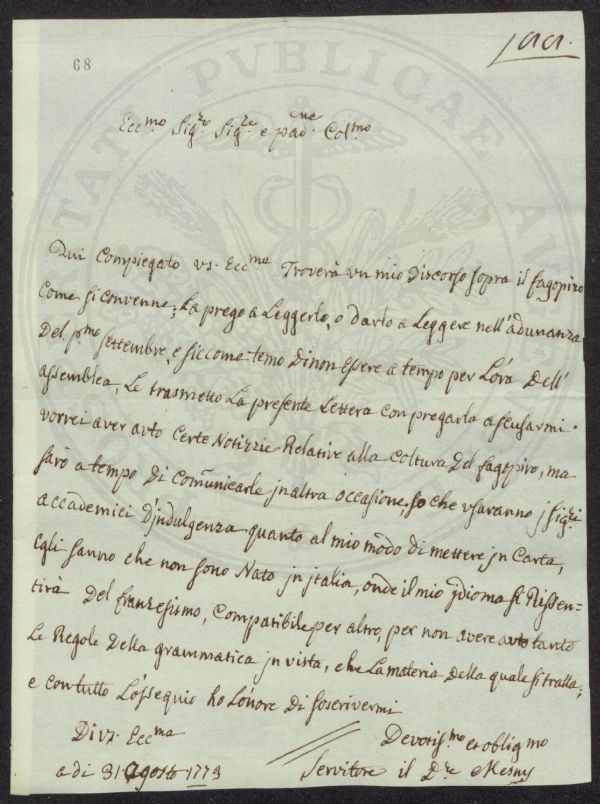 68
Ecc.mo Sig.re Sig.re e pad.ne Col.mo
Qui Compiegato vs. Ecc.ma Troverà un mio Discorso sopra il fagopiro
Come si convenne; La prego a Leggerlo, o darlo a Leggere nell'adunanza
Del p.mo settembre, e siccome temo Di non Essere a tempo per L'ora Dell'
assemblea, Le trasmetto La presente Lettera con pregarla a scusarmi.
vorrei aver auto Certe Notizzie Relative alla coltura Del fagopiro, ma
sarò a tempo Di comunicarle jn altra occasione, so che usaranno j sig.ri
accademici D'jndulgenza quanto al mio modo di mettere jn Carta,
Egli sanno che non sono Nato jn jtalia, onde il mio ydioma si Rissen=
tirà Del franzesismo, Compatibile per altro, per non avere auto tanto
Le Regole Della grammatica jn vista, che La materia Della quale si tratta;
e con tutto L'ossequio ho L'onore Di soscrivermi
Di vs. Ecc.ma
a di 31 Agosto 1773
Devotis.mo et oblig.mo
Servitore il D.re Mesny